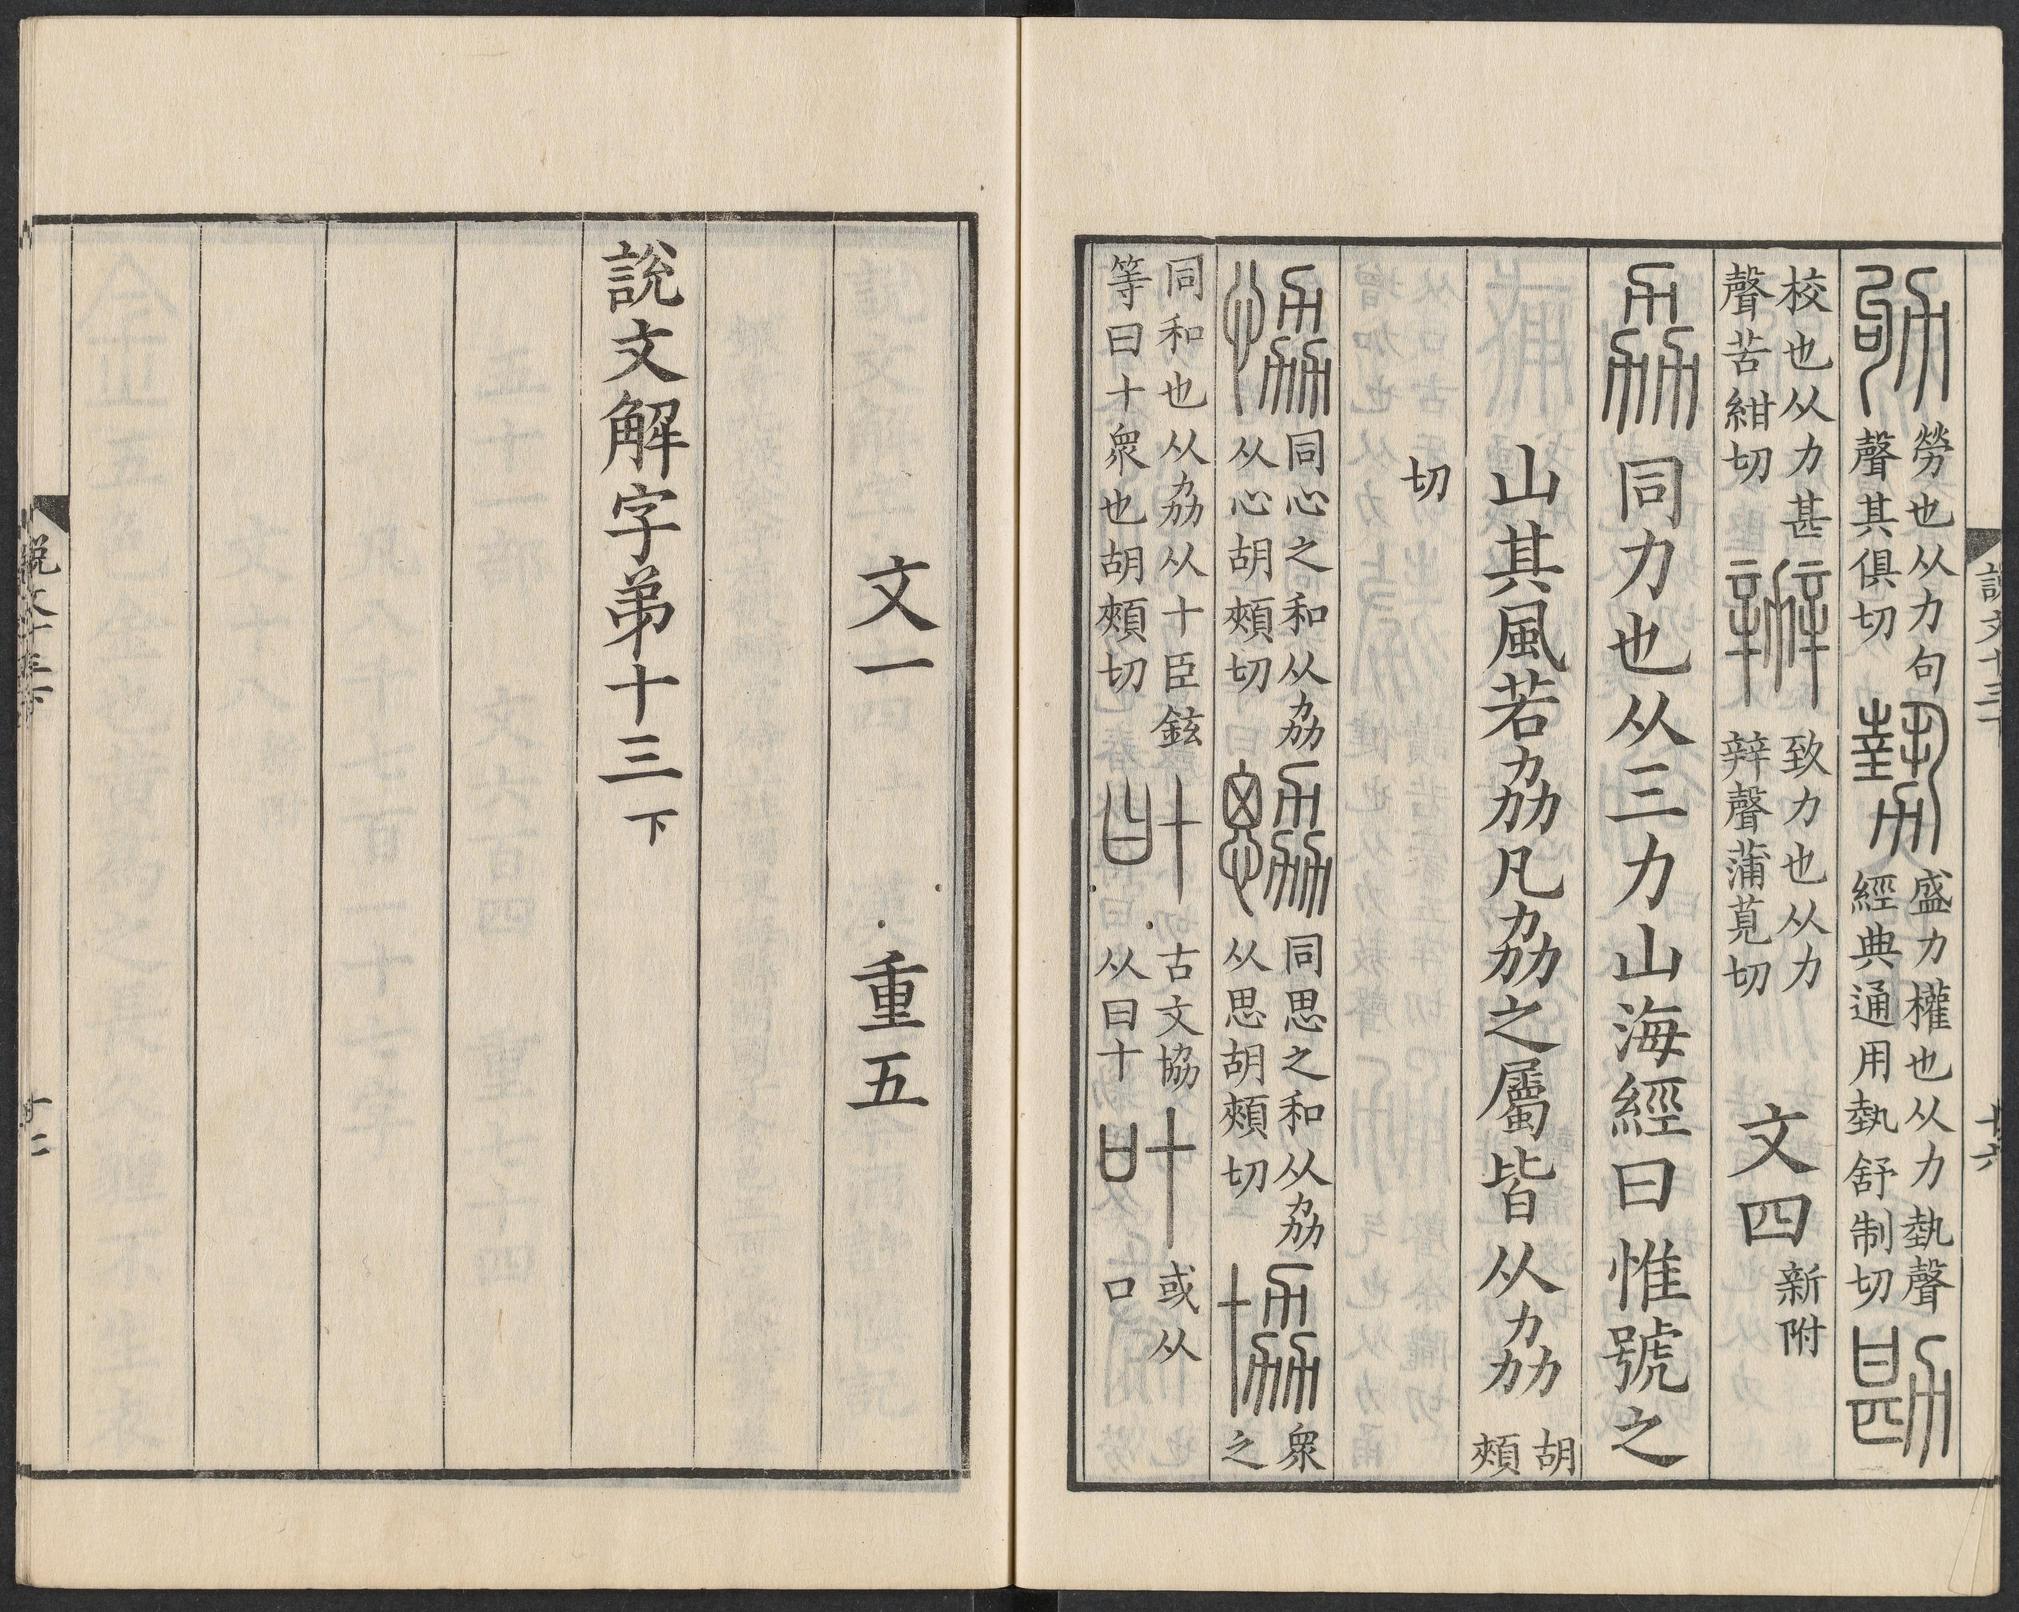 勞也从力句
聲其俱切
盛力權也从力埶聲
經典通用埶舒制切
校也从力甚
聲苦紺切
致力也从力
辡聲蒲莧切
文四
新附
劦 同力也从三力山海經曰惟號之
山其風若劦凡劦之屬皆从劦
胡
頰
切
同心之和从劦
从心胡頰切
同思之和从劦
从思胡頰切
衆
之
同和也从劦从十臣鉉
等曰十衆也胡頰切
古文協
从曰十
或从
口
文一 重五
說文解字弟十三下